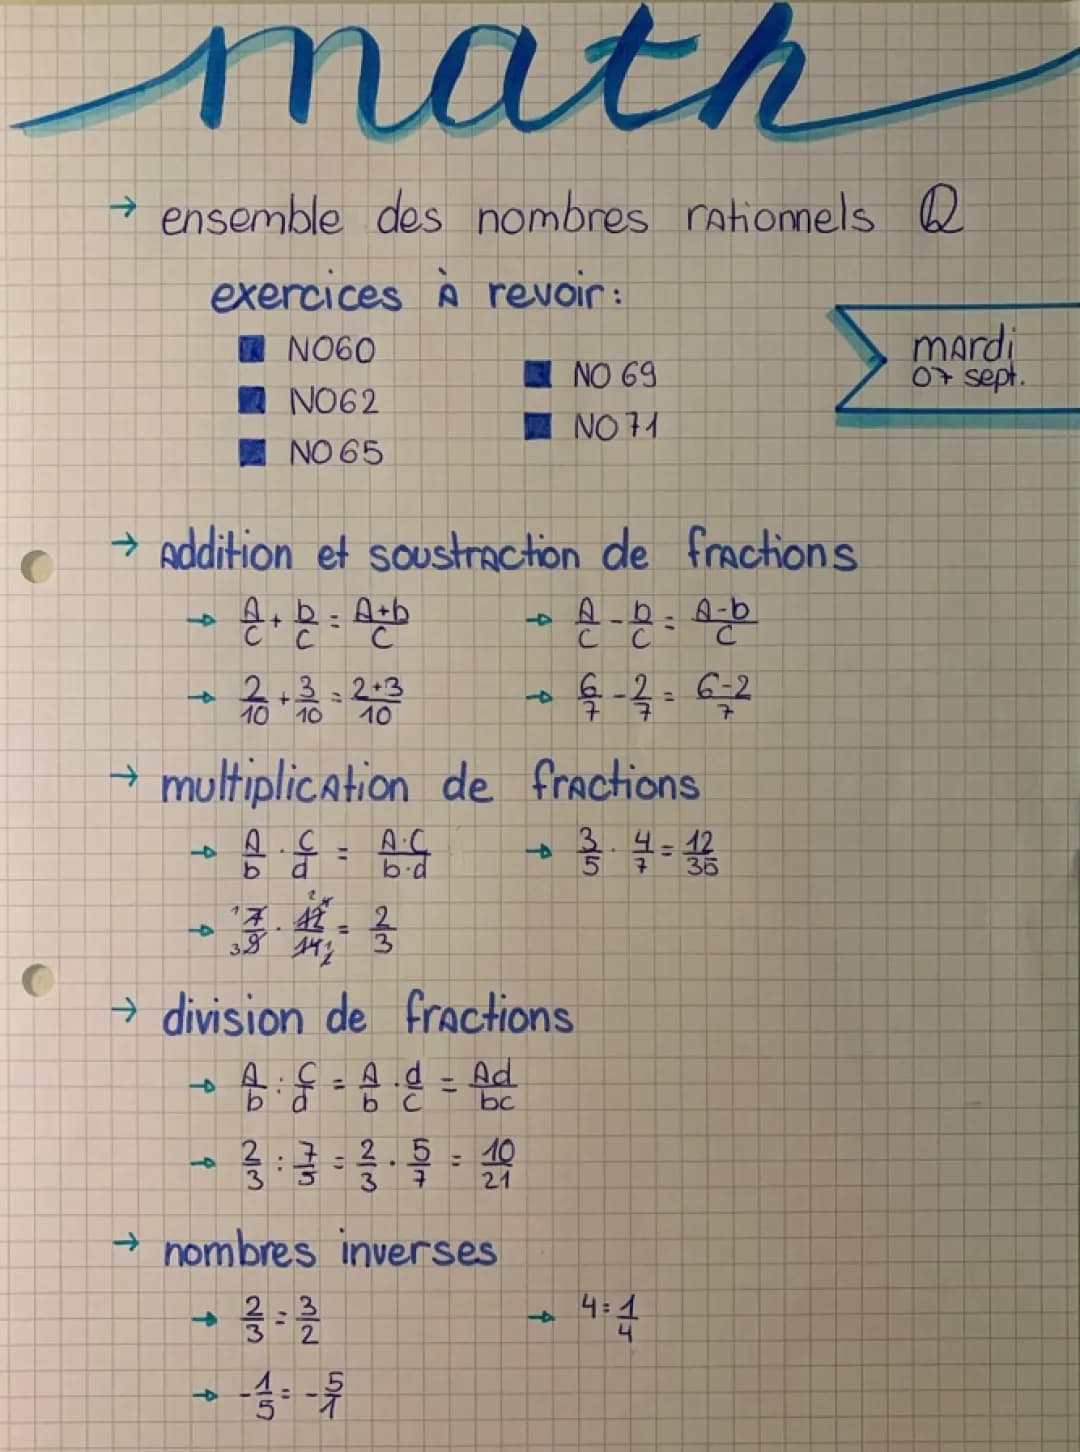 math
→ ensemble des nombres rationnels ℚ
exercices à revoir:
■ NO60
■ NO62
■ NO65
■ NO 69
■ NO 71
mardi
07 sept.
→ addition et soustraction de fractions
→ A/C + b/C = A+b/C
→ A/C - b/C = A-b/C
→ 2/10 + 3/10 = 2+3/10
→ 6/7 - 2/7 = 6-2/7
→ multiplication de fractions
→ A/b · C/d = A·C/b·d
→ 3/5 · 4/7 = 12/35
→ 7/9 · 12/14 = 2/3
→ division de fractions
→ A/b : C/d = A/b · d/C = Ad/bc
→ 2/3 : 7/5 = 2/3 · 5/7 = 10/21
→ nombres inverses
→ 2/3 = 3/2
→ 4 = 1/4
→ -1/5 = -5/1